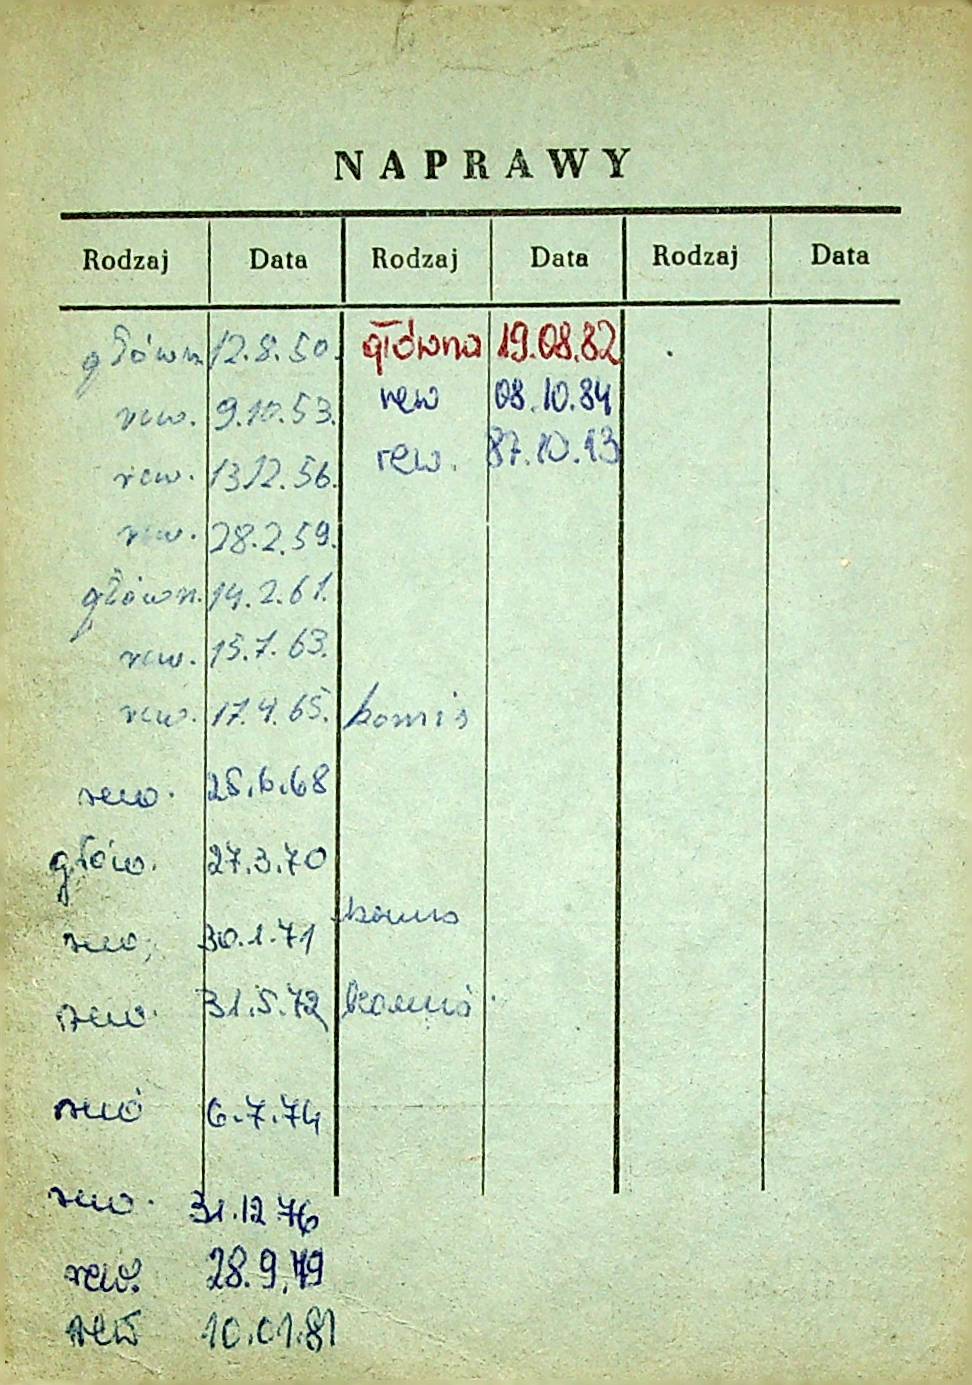 NAPRAWY
Rodzaj Data Rodzaj Data Rodzaj Data
główn. 12.8.50. główna 19.08.82
rew. 9.10.53. rew 08.10.84
rew. 13.12.56. rew. 87.10.13
rew. 28.2.59.
główn. 14.2.61.
rew. 15.7.63.
rew. 17.4.65. komis
rew. 28.6.68
głów. 27.3.70
rew. 30.1.71 komis
rew. 31.5.72 komis
rew 6.7.74
rew. 31.12.76
rew. 28.9.79
rew 10.01.81